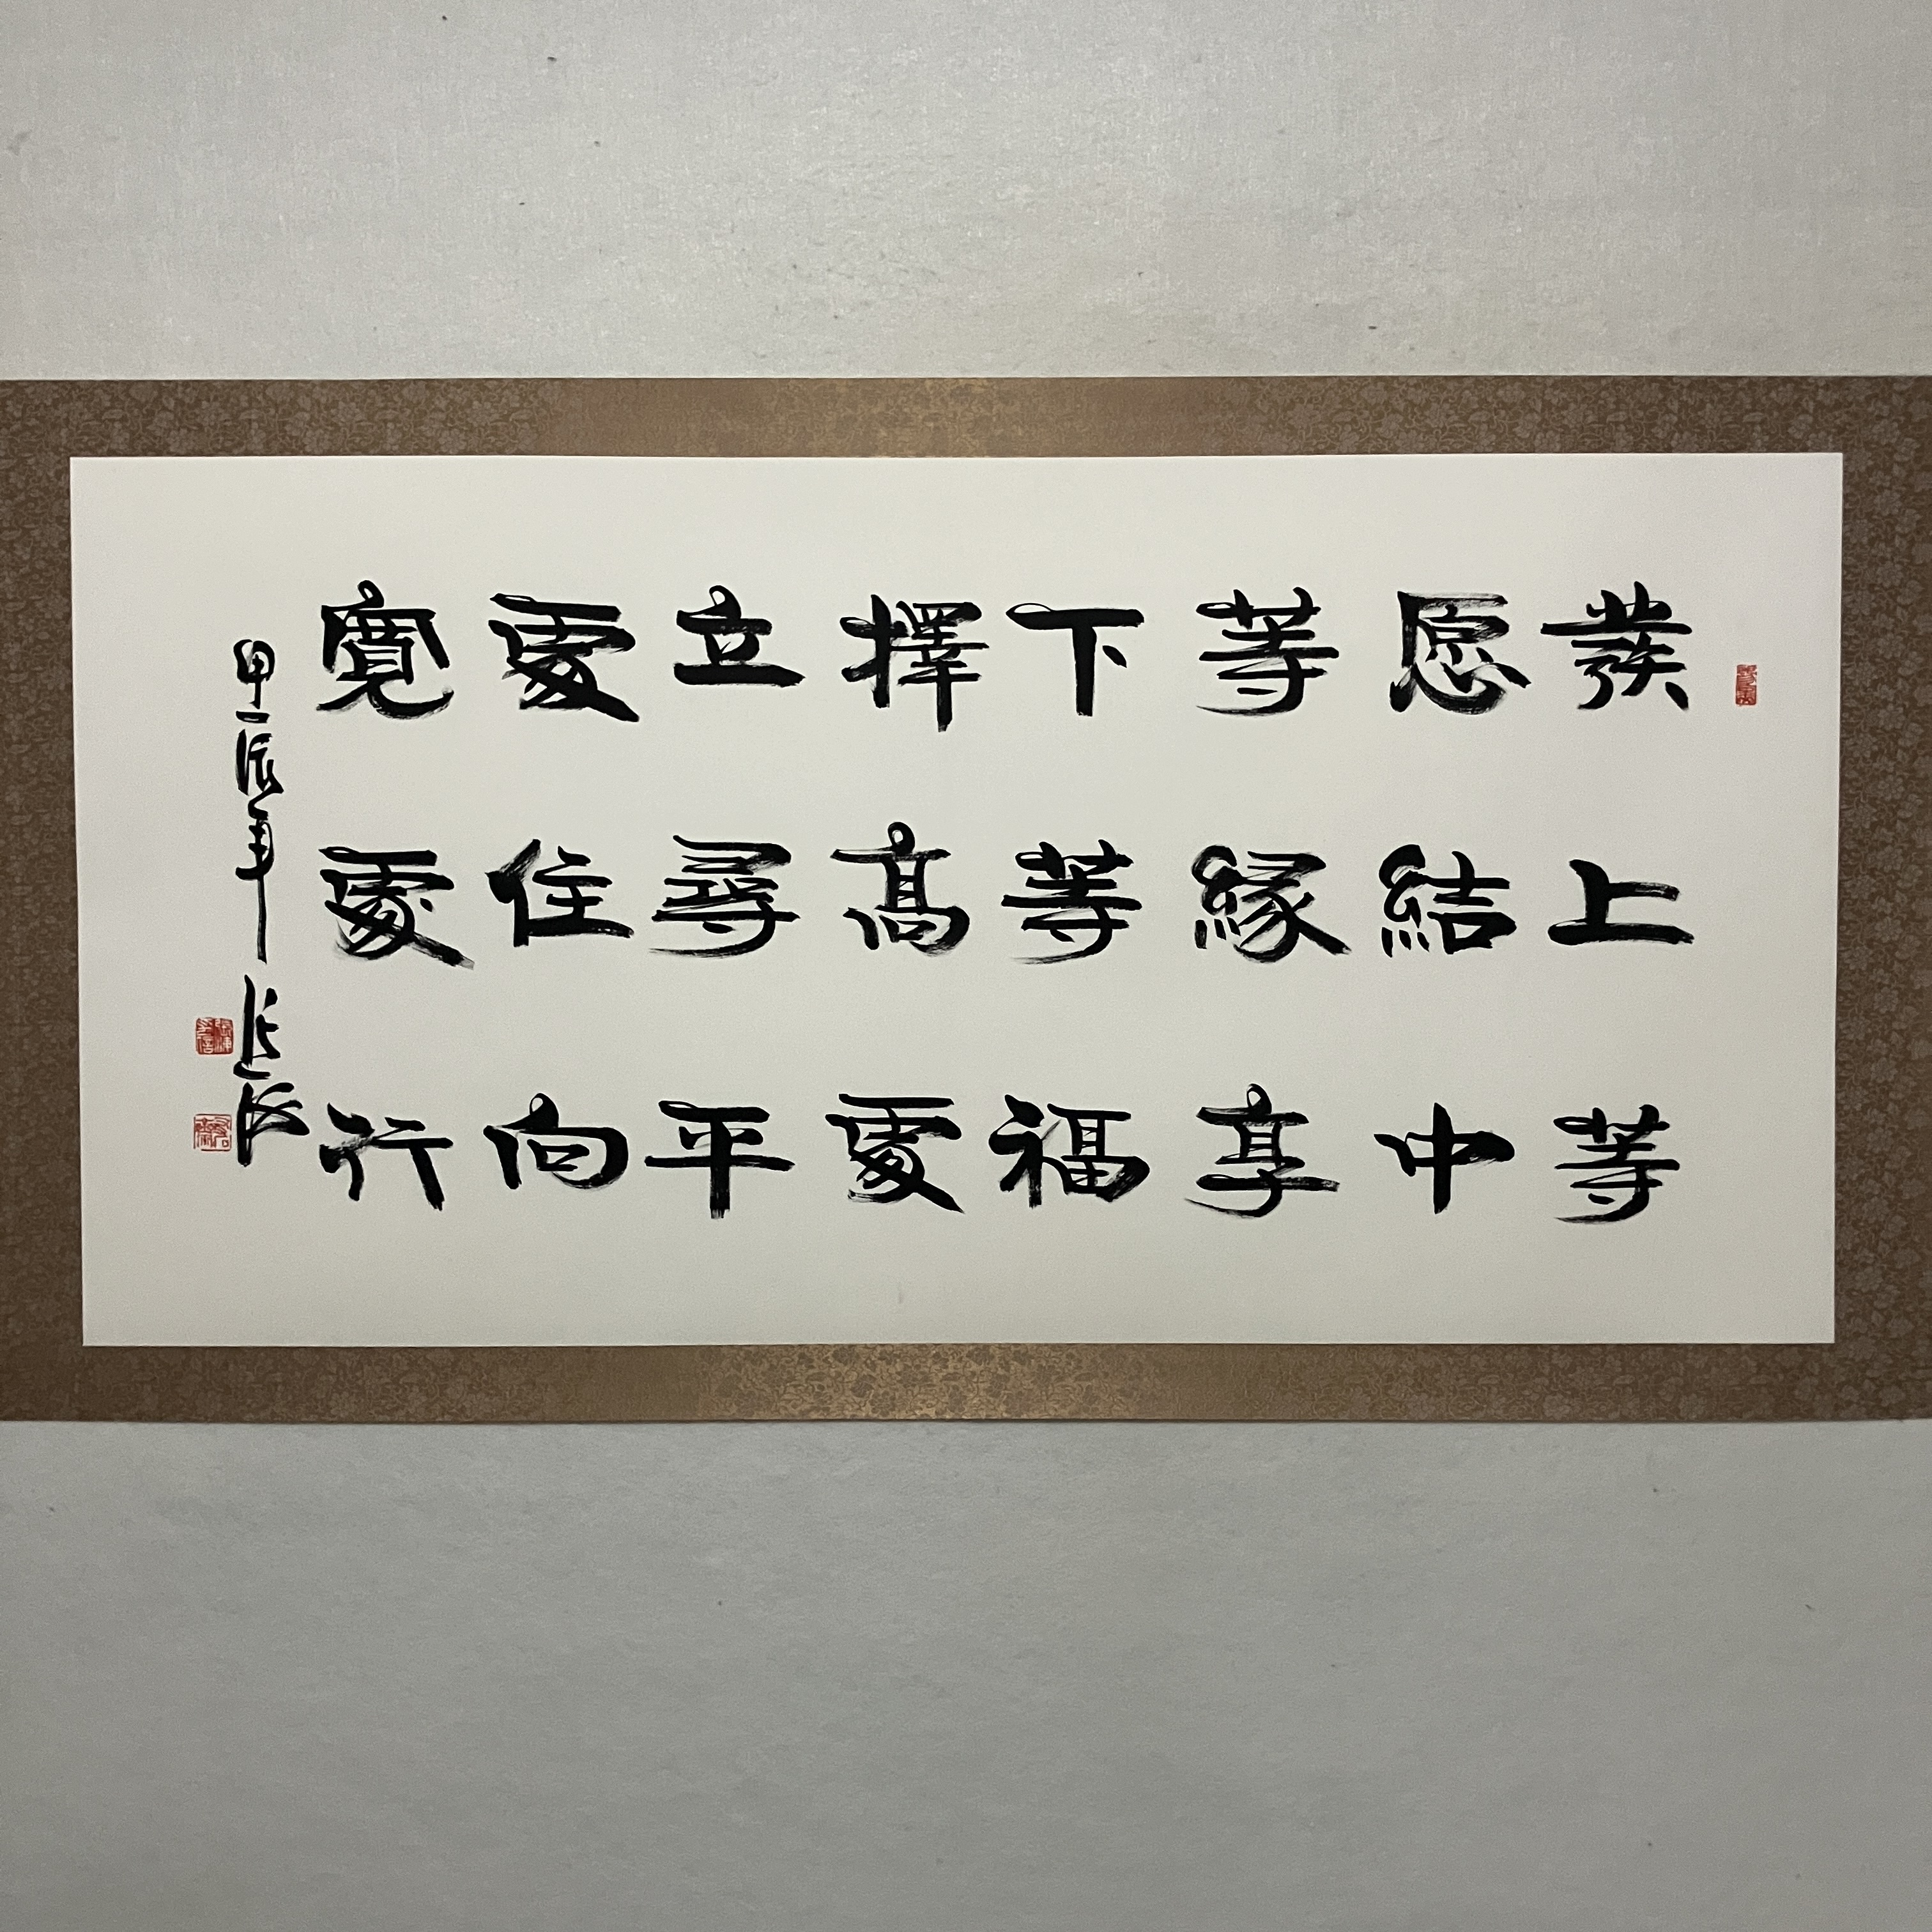 發上等
愿結中
等緣享
下等福
擇高處
立尋平
處住向
寬處行
甲辰年